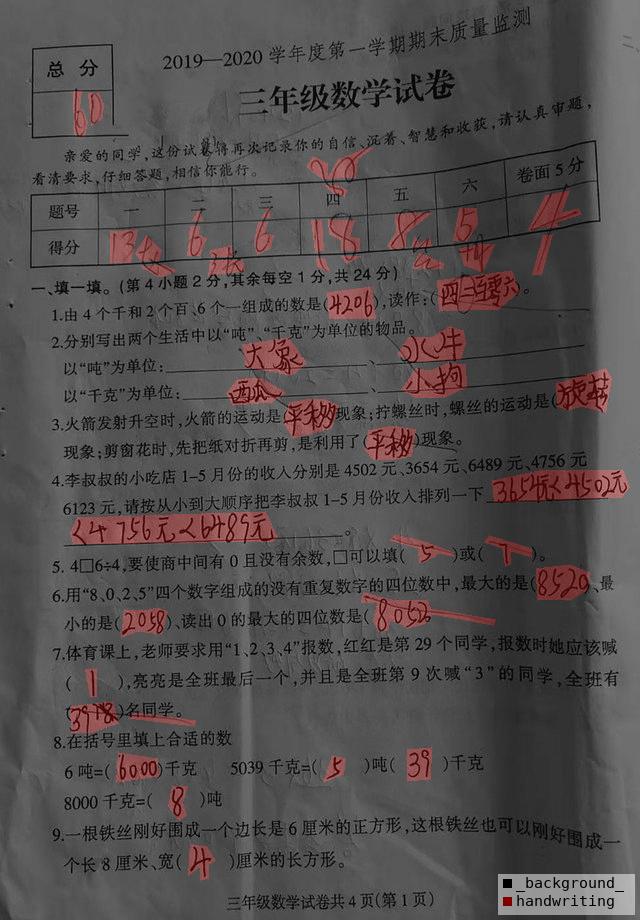 2019—2020 学年度第一学期期末质量监测
总 分
60
三年级数学试卷
亲爱的同学,这份试卷将再次记录你的自信、沉着、智慧和收获,请认真审题,
看清要求,仔细答题,相信你能行。
题号 一 二 三 四 五 六 卷面 5 分
得分 13 6 6 18 8 5 4
一、填一填。(第 4 小题 2 分,其余每空 1 分,共 24 分)
1.由 4 个千和 2 个百、6 个一组成的数是(4206),读作:( )。
2.分别写出两个生活中以“吨”、“千克”为单位的物品。
以“吨”为单位: 大象 、 水牛
以“千克”为单位: 西瓜 、 小狗
3.火箭发射升空时,火箭的运动是(平移)现象;拧螺丝时,螺丝的运动是(旋转)
现象;剪窗花时,先把纸对折再剪,是利用了(平移)现象。
4.李叔叔的小吃店 1–5 月份的收入分别是 4502 元、3654 元、6489 元、4756 元
6123 元,请按从小到大顺序把李叔叔 1–5 月份收入排列一下 3654元<4502元
<4756元<6489元 。
5. 4□6÷4,要使商中间有 0 且没有余数,□可以填( 5 )或( 1 )。
6.用“8、0、2、5”四个数字组成的没有重复数字的四位数中,最大的是(8520)、最
小的是(2058)、读出 0 的最大的四位数是( 8052 )
7.体育课上,老师要求用“1、2、3、4”报数,红红是第 29 个同学,报数时她应该喊
( 1 ),亮亮是全班最后一个,并且是全班第 9 次喊“3”的同学,全班有
( )名同学。
8.在括号里填上合适的数
6 吨=(6000)千克 5039 千克=( 5 )吨( 39 )千克
8000 千克=( 8 )吨
9.一根铁丝刚好围成一个边长是 6 厘米的正方形,这根铁丝也可以刚好围成一
个长 8 厘米、宽( 4 )厘米的长方形。
三年级数学试卷共 4 页(第 1 页)
_background_
handwriting